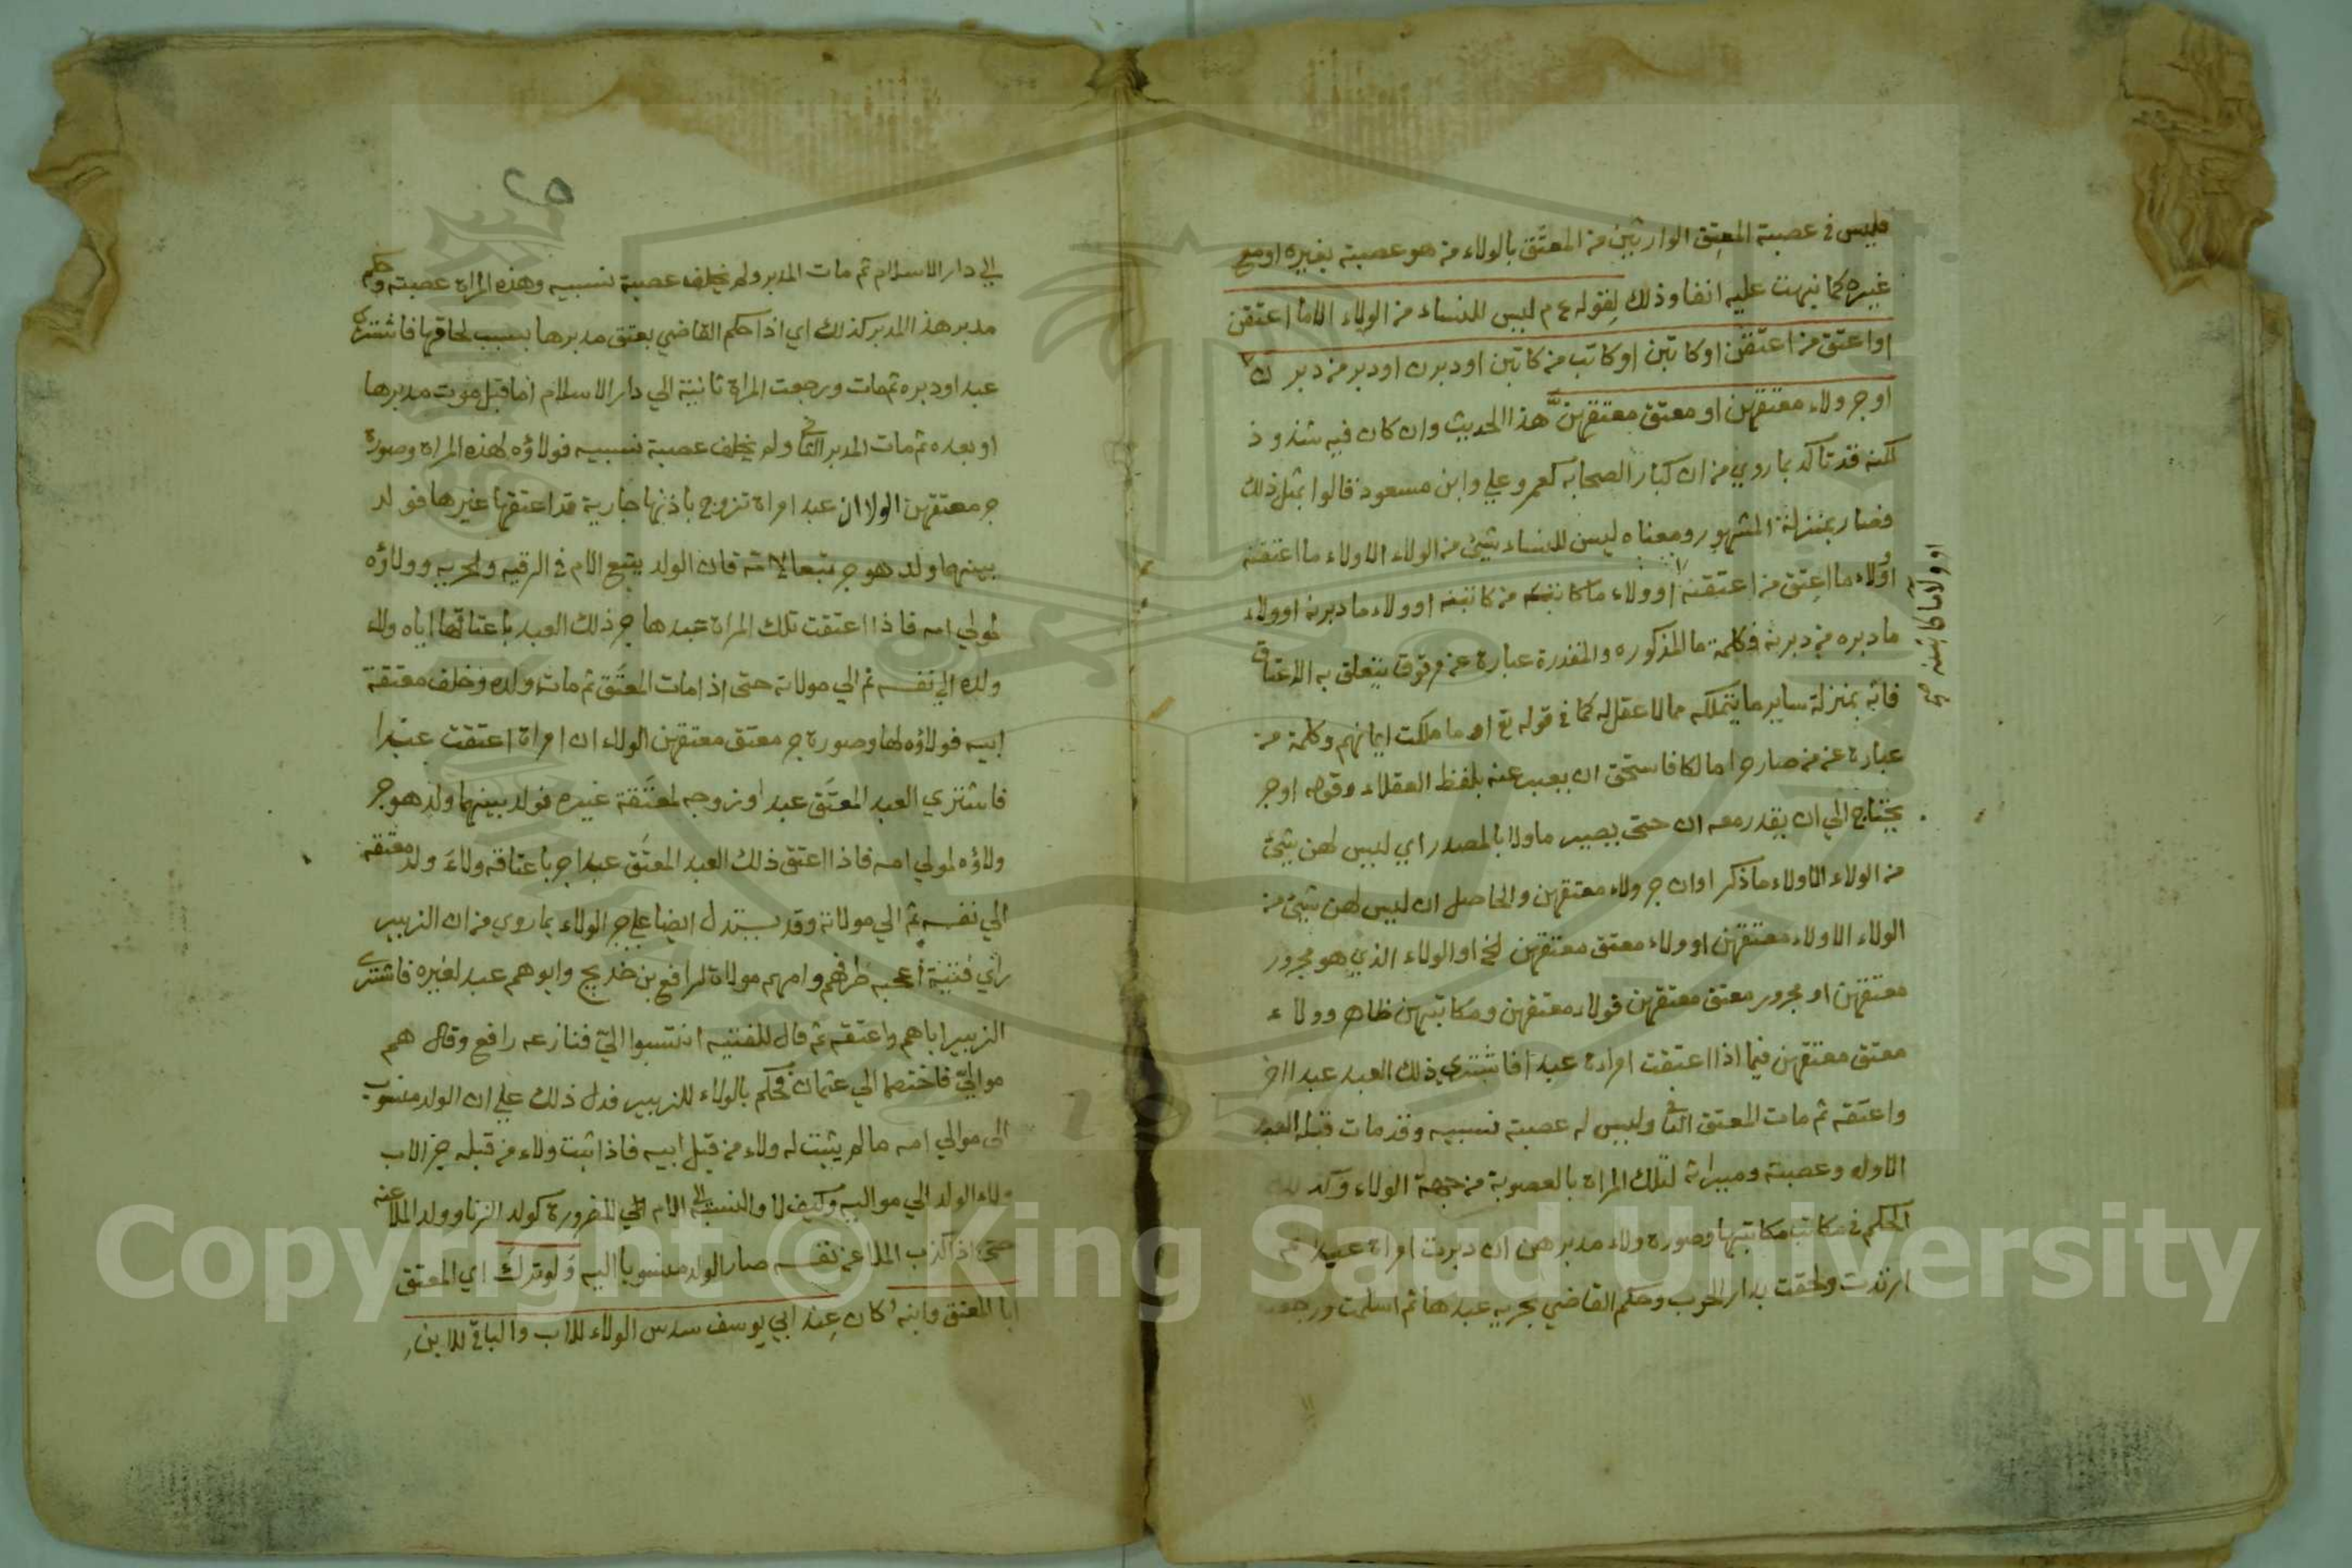 فليس في عصبة المعتِق الوارثين من المعتَق بالولاء من هو عصبة بغيره او مع
غيره كما نبهت عليه انفا وذلك لقوله ع م ليس للنساء من الولاء الا ما اعتقن
او اعتق من اعتقن او كاتبن او كاتب من كاتبن او دبرن او دبر من دبرن
او جر ولاء معتقهن او معتق معتقهن هذا الحديث وان كان فيه شذوذ
لكنه قد تاكد بما روي من ان كبار الصحابه كعمر وعلي وابن مسعود قالوا بمثل ذلك
فصار بمنزلة المشهور ومعناه ليس للنساء شيئ من الولاء الا ولاء ما اعتقنه
او ولاء ما اعتق من اعتقنه او ولاء ما كاتبه من كاتبنه او ولاء ما دبرنه او ولاء
ما دبره من دبرنه فكلمة ما المذكوره والمقدرة عبارة عن مرقوق يتعلق به الاعتاق
فانه بمنزلة ساير ما يتملكه مما لا عقل له كما في قوله تع او ما ملكت ايمانهم وكلمة من
عبارة عن من صار حرا مالكا فاستحق ان يعبر عنه بلفظ العقلاء وقوله او جر
يحتاج الي ان يقدر معه ان حتى يصير ماولا بالمصدر اي ليس لهن شيئ
من الولاء الا ولاء ما ذكر او ان جر ولاء معتقهن والحاصل ان ليس لهن شيئ من
الولاء الا ولاء معتقهن او ولاء معتق معتقهن الخ او الولاء الذي هو مجرور
معتقهن او مجرور معتق معتقهن فولاء معتقهن ومكاتبهن ظاهر وولاء
معتق معتقهن فيما اذا اعتقت امراة عبدا فاشتري ذلك العبد عبدا اخر
واعتقه ثم مات المعتق الثاني وليس له عصبة نسبيه وقد مات قبله العبد
الاول وعصبته وميراثه لتلك المراة بالعصوبة من جهة الولاء وكذلك
الحكم في مكاتب مكاتبها وصورة ولاء مدبرهن ان دبرت امراة عبدا ثم
ارتدت ولحقت بدار الحرب وحكم القاضي بحرية عبدها ثم اسلمت ورجعت
او ولاء ما كاتبنه صح
الي دار الاسلام ثم مات المدبر ولم يخلف عصبة نسبيه وهذه المراة عصبته وحكم
مدبر هذا المدبر كذلك اي اذا حكم القاضي بعتق مدبرها بسبب لحاقها فاشتري
عبدا ودبره ثم مات ورجعت المراة ثانية الي دار الاسلام اما قبل موت مدبرها
او بعده ثم مات المدبر الثاني ولم يخلف عصبة نسبيه فولاؤه لهذه المراة وصورة
جر معتقهن الولاء ان عبد امراة تزوج باذنها جارية قد اعتقها غيرها فولد
بينهما ولد هو حر تبعا لامه فان الولد يتبع الام في الرقيه والحريه وولاؤه
لموالي امه فاذا اعتقت تلك المراة عبدها جر ذلك العبد باعتاقها اياه ولاء
ولده الي نفسه ثم الي مولاته حتى اذا مات المعتَق ثم مات ولده وخلف معتقة
ابيه فولاؤه لها وصورة جر معتق معتقهن الولاء ان امراة اعتقت عبدا
فاشتري العبد المعتَق عبدا وزوجه لمعتَقة غيره فولد بينهما ولد هو حر
ولاؤه لمولي امه فاذا اعتق ذلك العبد المعتَق عبدا جر باعتاقه ولاءَ ولد معتقه
الي نفسه ثم الي مولاته وقد يستدل ايضا علي جر الولاء بما روي من ان الزبير
رأي فتية أعجبه ظرفهم وامهم مولاة لرافع بن خديج وابوهم عبد لغيره فاشتري
الزبير اباهم واعتقه ثم قال للفتيه انتسبوا اليّ فنازعه رافع وقال هم
مواليّ فاختصما الي عثمان فحكم بالولاء للزبير فدل ذلك علي ان الولد منسوب
الى موالي امه ما لم يثبت له ولاء من قبل ابيه فاذا ثبت ولاء من قبله جر الاب
ولاء الولد الي مواليه وكيف لا والنسبة الى الام للضرورة كولد الزنا وولد الملاعنه
حتى اذا كذب الملاعن نفسه صار الولد منسوبا اليه ولو ترك اي المعتق
ابا المعتق وابنه كان عند ابي يوسف سدس الولاء للاب والباقي للابن
Copyright © King Saud University
1957